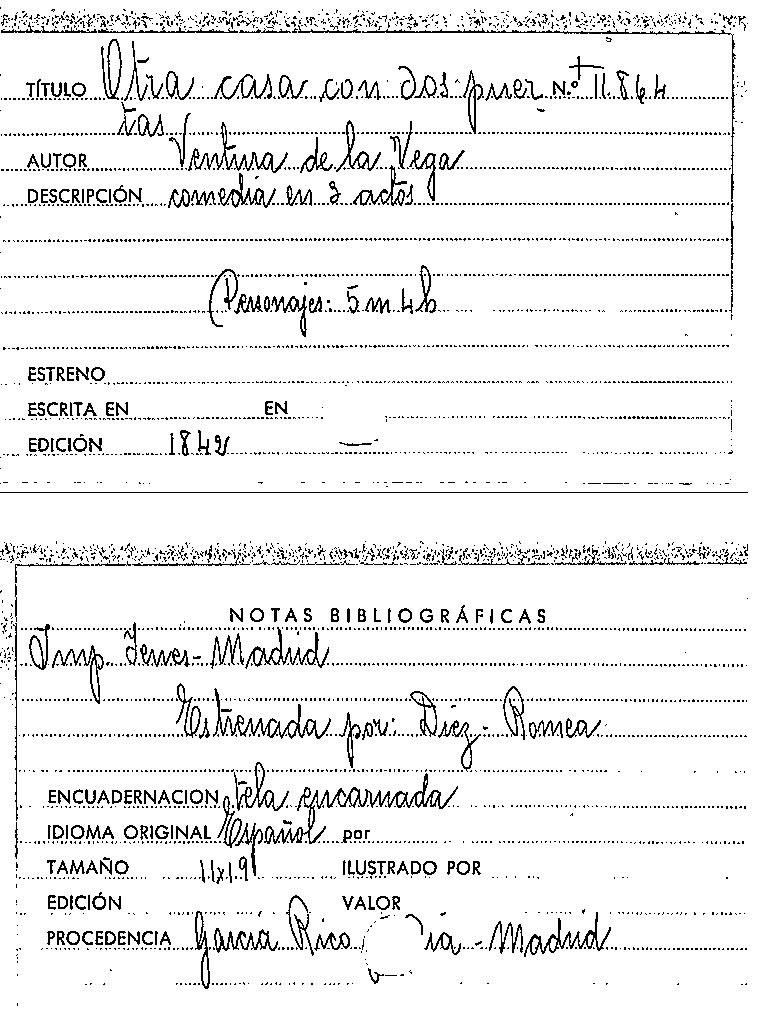 TÍTULO Otra casa con dos puer N.º 11.864
tas
AUTOR Ventura de la Vega
DESCRIPCIÓN comedia en 3 actos
Personajes: 5 m 4 h
ESTRENO
ESCRITA EN EN
EDICIÓN 1842 —
NOTAS BIBLIOGRÁFICAS
Imp. Yenes - Madrid
Estrenada por: Díez - Romea
ENCUADERNACION tela encarnada
IDIOMA ORIGINAL Español por
TAMAÑO 11x19 ILUSTRADO POR
EDICIÓN VALOR
PROCEDENCIA García Rico - Madrid